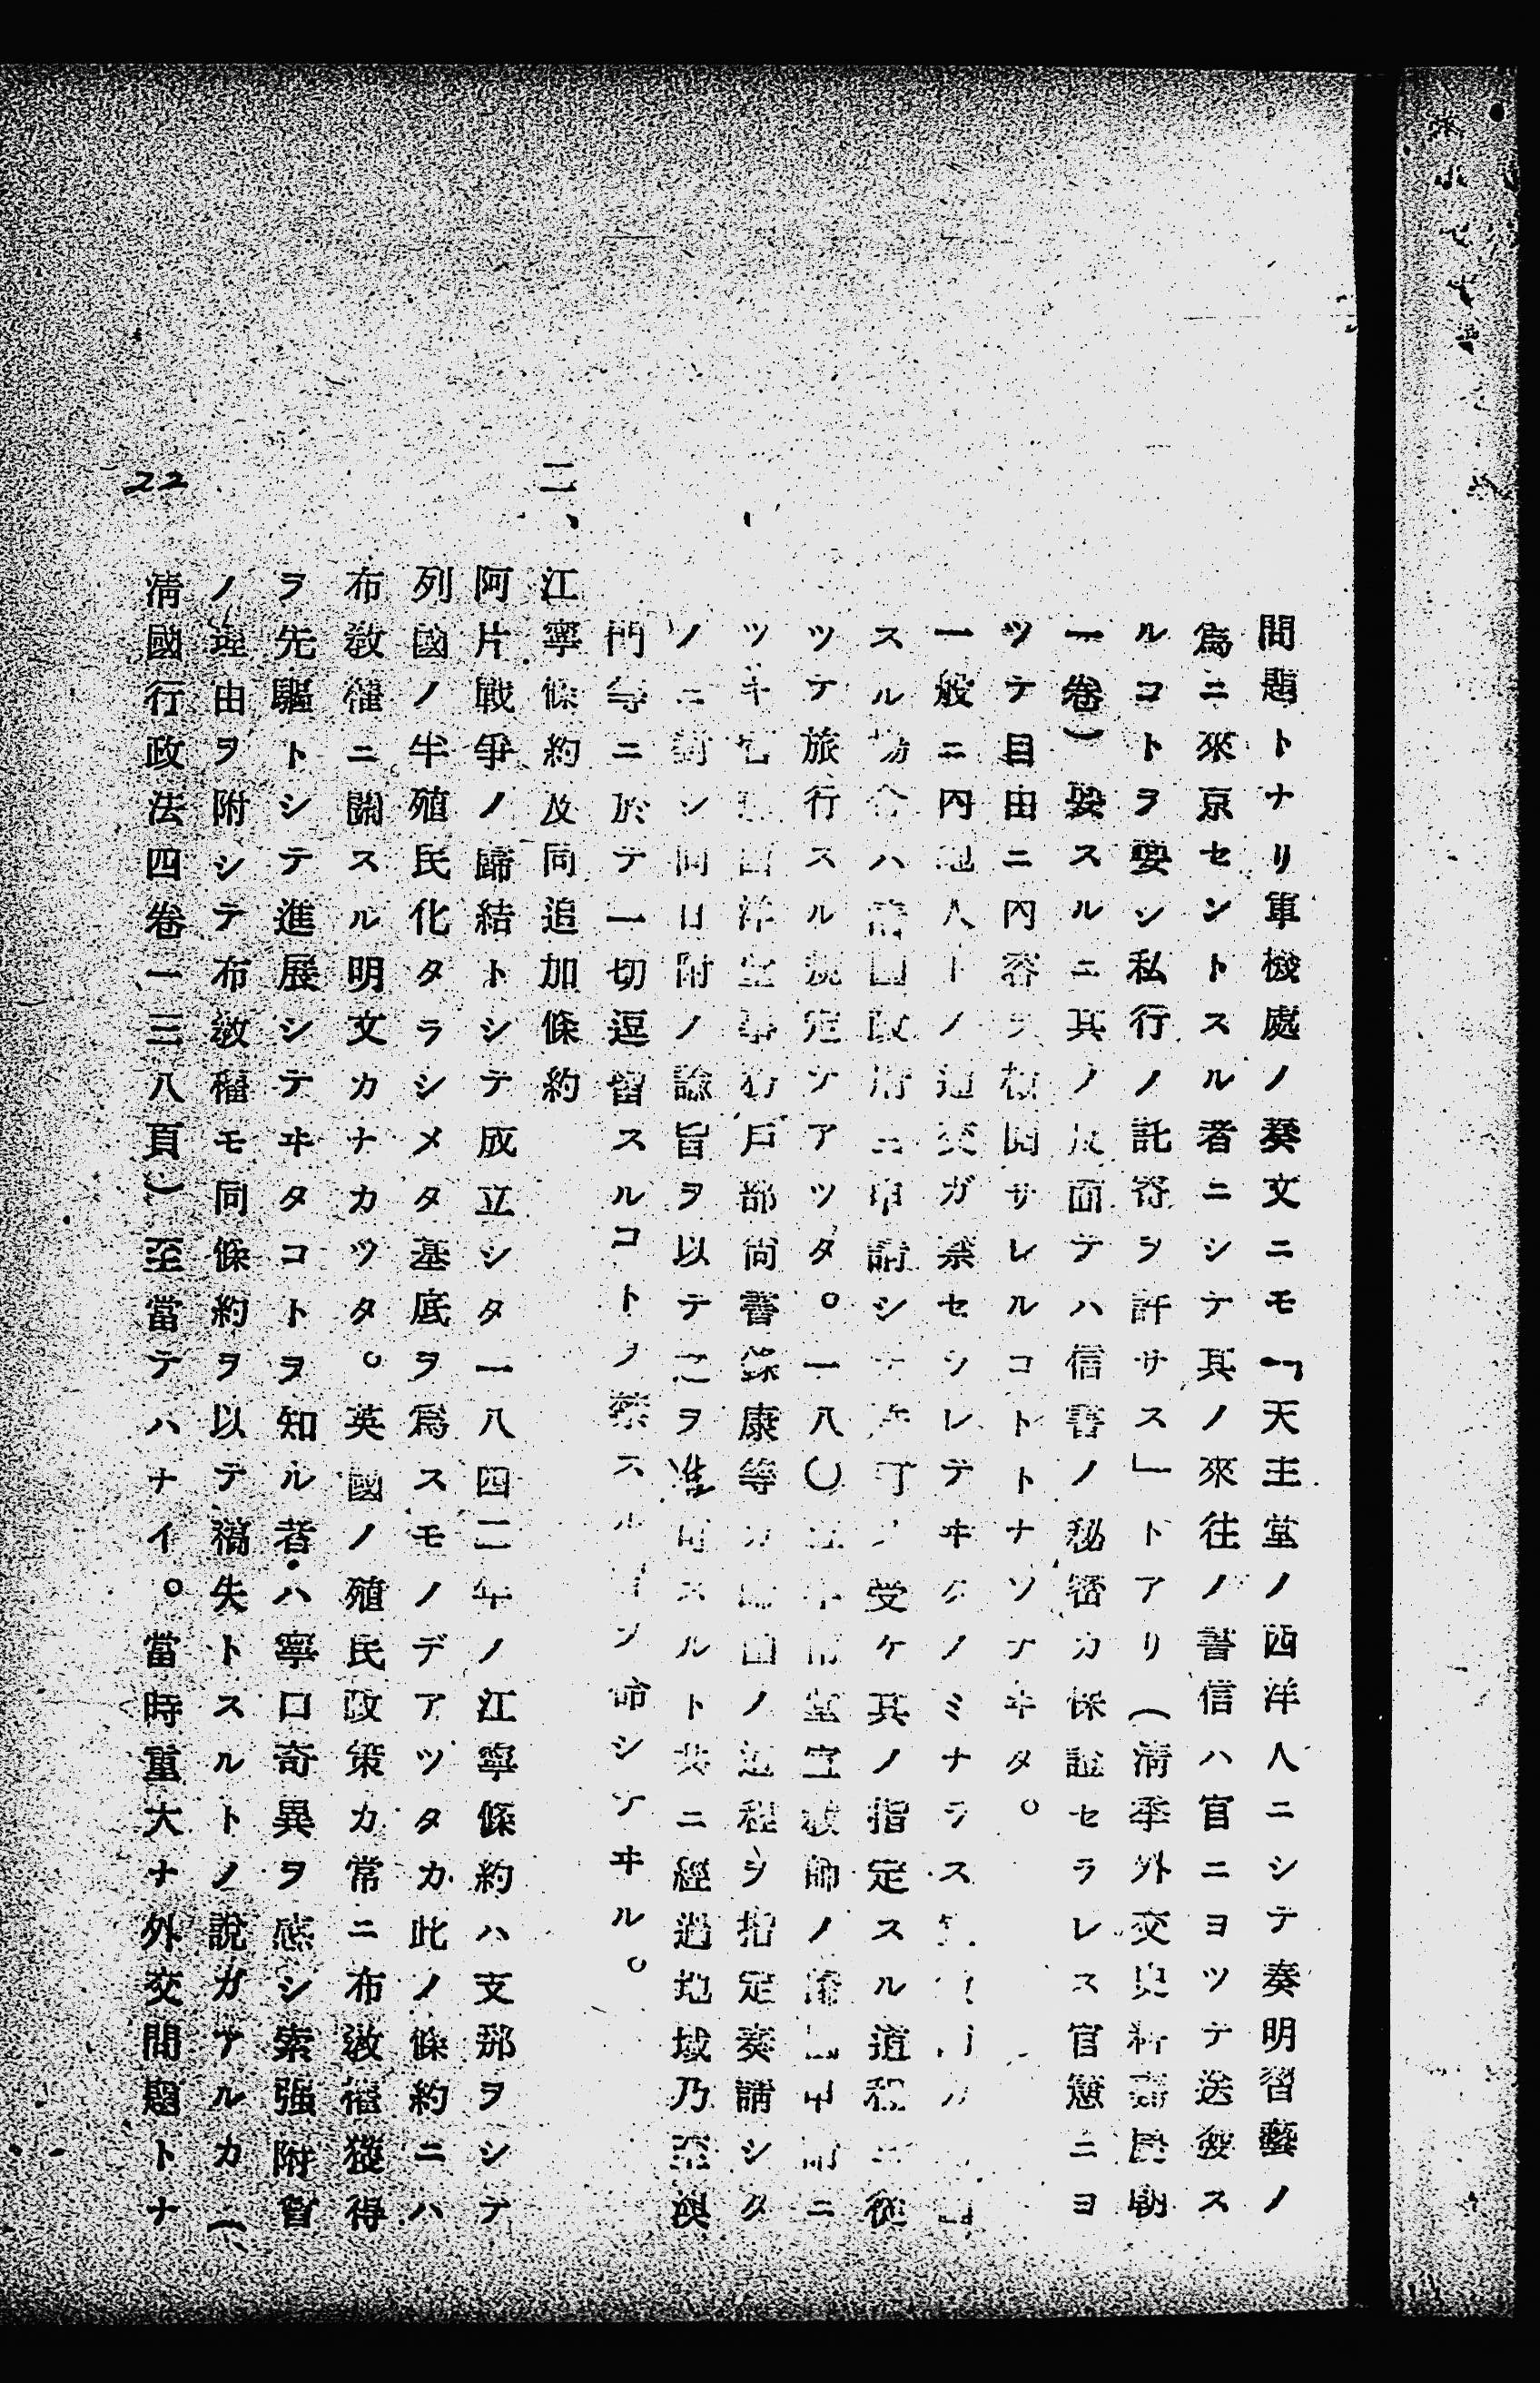 問題トナリ軍機處ノ奏文ニモ「天主堂ノ西洋人ニシテ奏明習藝ノ
爲ニ來京セントスル者ニシテ其ノ來往ノ書信ハ官ニヨツテ送發ス
ルコトヲ要シ私行ノ託寄ヲ許サス」トアリ(淸季外交史料嘉慶朝
一卷)要スルニ其ノ反面テハ信書ノ秘密カ保證セラレス官憲ニヨ
ツテ自由ニ內容ヲ檢閲サレルコトトナツテヰタ。
一般ニ內地人トノ通交ガ禁セシレテヰタノミナラス
スル場合ハ 政府ニ申請シテ許可ヲ受ケ其ノ指定スル道程ニ從
ツテ旅行スル規定ケアツタ。一八〇 堂宣敎師ノ ニ
ツキ 西洋堂事務戶部尙書祿康等カ 國ノ道程ヲ指定奏請シタ
ノニ對シ同日附ノ諭旨ヲ以テ之ヲ准可スルト共ニ經過地域乃至澳
門等ニ於テ一切逗留スルコトヲ禁スル ヲ命シテヰル。
二、江寧條約及同追加條約
阿片戰爭ノ歸結トシテ成立シタ一八四二年ノ江寧條約ハ支那ヲシテ
列國ノ半殖民化タラシメタ基底ヲ爲スモノデアツタカ此ノ條約ニハ
布敎權ニ關スル明文カナカツタ。英國ノ殖民政策カ常ニ布敎權獲得
ヲ先驅トシテ進展シテヰタコトヲ知ル者ハ寧口奇異ヲ感シ索强附會
ノ理由ヲ附シテ布敎權モ同條約ヲ以テ獲失トスルトノ說ガアルカ(
淸國行政法四卷一三八頁)至當テハナイ。當時重大ナ外交問題トナ
22